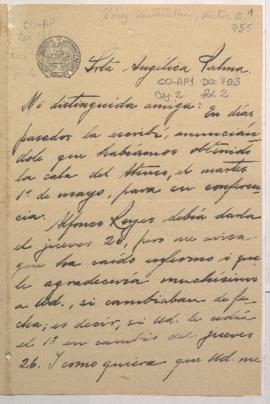 CO-AP
Caj. 2
Pérez Víctor
755
Srta Angélica Palma.
CO-AP1 DOC 703
Caj. 2 fol. 2
Mi distinguida amiga: En días
pasados la escribí, anuncián
dole que habíamos obtenido
la sala del Ateneo, el martes
1º de mayo, para su conferen
cia.
Alfonso Reyes debía darla
el jueves 26, pero me avisa
que ha caído enfermo i que
le agradecería muchísimo
a Ud., si cambiaban de fe
cha; es decir, si Ud. le cedía
el 1º en cambio del jueves
26. I como quiera que Ud. me